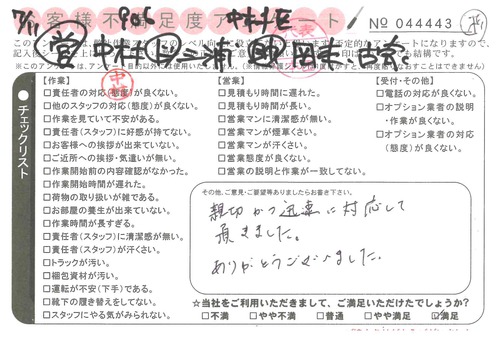 お客様不満足度アンケート
№ 044443
7/11
チェックリスト
【作業】
□責任者の対応(態度)が良くない。
□他のスタッフの対応(態度)が良くない。
□作業を見ていて不安がある。
□責任者(スタッフ)に好感が持てない。
□お客様への挨拶が出来ていない。
□ご近所への挨拶・気遣いが無い。
□作業開始前の内容確認がなかった。
□作業開始時間が遅れた。
□荷物の取り扱いが雑である。
□お部屋の養生が出来ていない。
□作業時間が長すぎる。
□責任者(スタッフ)に清潔感が無い。
□責任者(スタッフ)が汗くさい。
□トラックが汚い。
□梱包資材が汚い。
□運転が不安(下手)である。
□靴下の履き替えをしてない。
□スタッフにやる気がみられない。
【営業】
□見積もり時間に遅れた。
□見積もり時間が長い。
□営業マンに清潔感が無い。
□営業マンが煙草くさい。
□営業マンが汗くさい。
□営業態度が良くない。
□営業の説明と作業が一致してない。
【受付・その他】
□電話の対応が良くない。
□オプション業者の説明・作業が良くない。
□オプション業者の対応(態度)が良くない。
その他、ご意見・ご要望等ありましたらお書き下さい。
親切かつ迅速に対応して
頂きました。
ありがとうございました。
☆当社をご利用いただきまして、ご満足いただけたでしょうか?
□不満 □やや不満 □普通 □やや満足 ☑満足